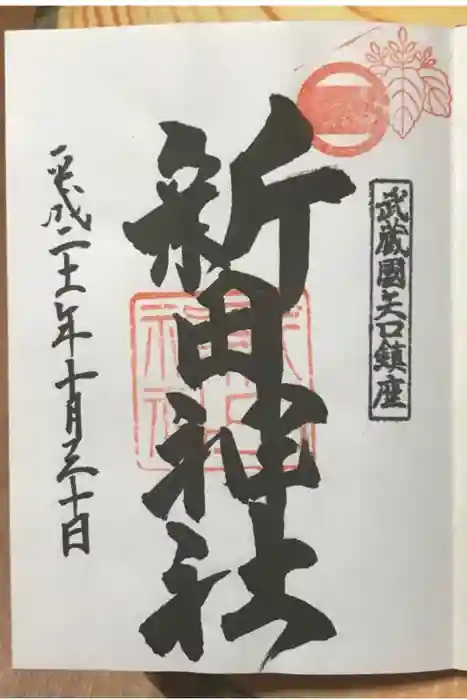 武蔵國矢口鎮座
新田神社
平成二十一年十月三十日